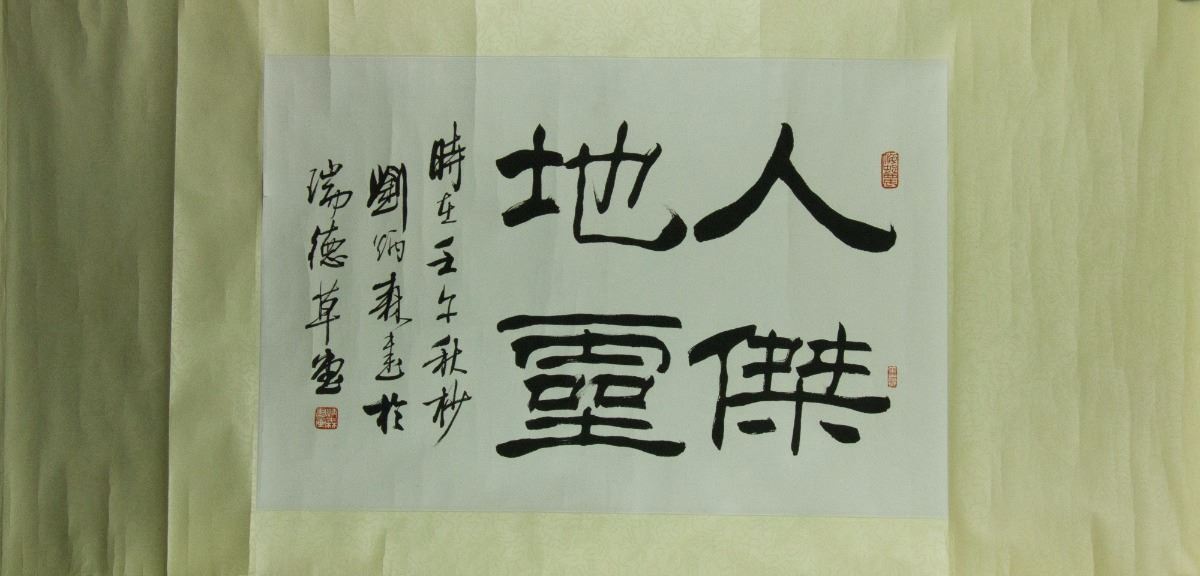 人傑
地靈
時在壬午秋杪
劉炳森書於
瑞德草堂